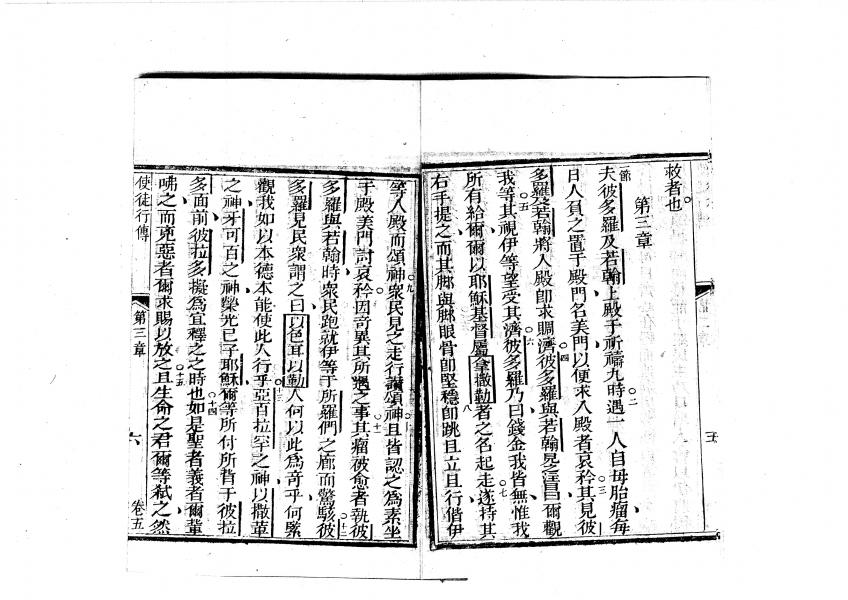 救者也。
第三章
一節
夫彼多羅及若翰上殿于祈禱九時遇一人自母胎瘤每
日人負之置于殿門名美門以便求入殿者哀矜其見彼
多羅及若翰將入殿卽求賙濟彼多羅與若翰 曰爾觀
我等其視伊等望受其濟彼多羅乃曰錢金我皆無惟我
所有給爾爾以耶穌基督屬拿撒勒者之名起走遂持其
右手提之而其脚與脚眼骨卽堅穩卽跳且立且行偕伊
等入殿而頌神衆民見之走行讚頌神且皆認之爲素坐
于殿美門討哀矜因奇異其所遇之事其瘤被愈者執彼
多羅與若翰時衆民跑就伊等于所羅們之廊而驚駭彼
多羅見民衆謂之曰以色耳以勒人何以此爲奇乎何緊
觀我如以本德本能使此人行乎亞百拉罕之神以撒革
之神牙可百之神榮光已子耶穌爾等所付所背于彼拉
多面前彼拉多擬爲宜釋之之時也如是聖者義者爾輩
咈之而 惡者爾求賜以放之且生命之君爾等弒之然
使徒行傳
第三章
六
卷五